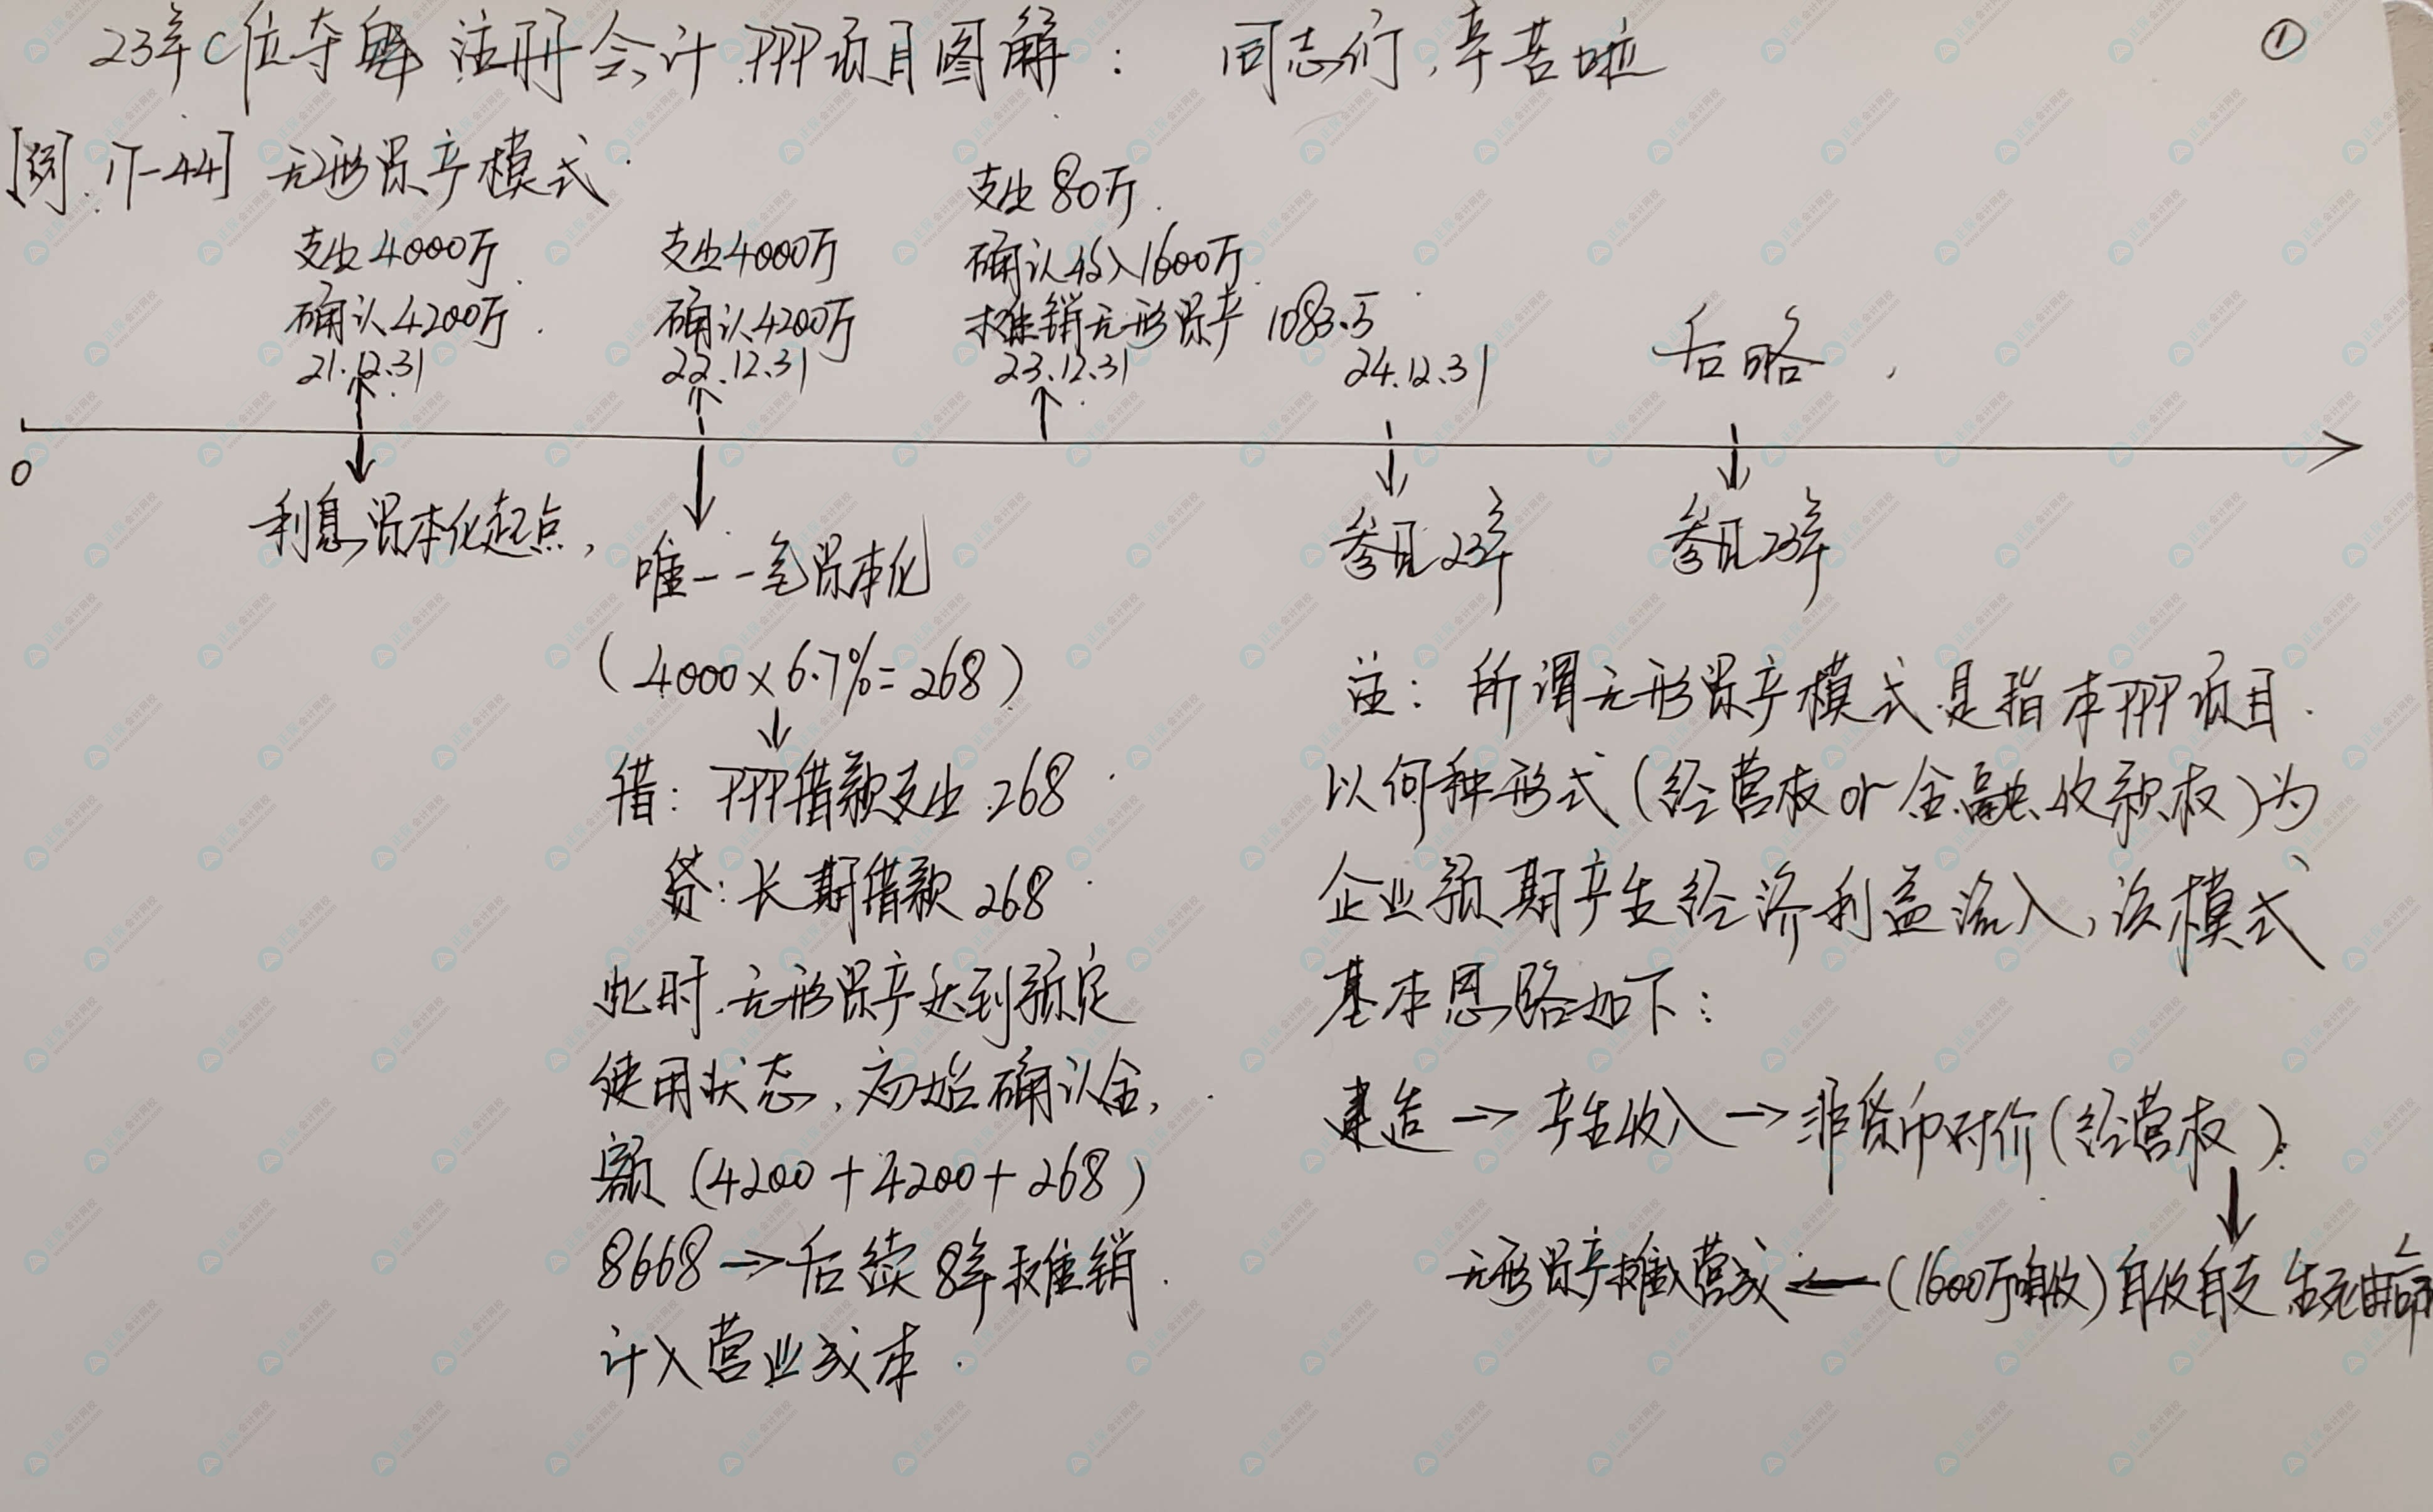 23年C位夺魁 注册会计 PPP项目图解： 同志们，辛苦啦
①
[例 17-44] 无形资产模式
支出4000万
确认4200万
21.12.31
支出4000万
确认4200万
22.12.31
支出80万
确认收入1600万
摊销无形资产 1083.5
23.12.31
24.12.31
后略
0
利息资本化起点，
唯一一笔资本化
(4000×6.7%=268)
借：PPP借款支出 268
贷：长期借款 268
此时，无形资产达到预定
使用状态，初始确认金
额 (4200+4200+268)
8668→后续8年摊销
计入营业成本
参见23年
参见23年
注：所谓无形资产模式是指本PPP项目
以何种形式(经营权or金融收款权)为
企业预期产生经济利益流入，该模式
基本思路如下：
建造→产生收入→非货币对价(经营权)
↓
无形资产摊入营成←(1600万自收)自收自支 生死由命